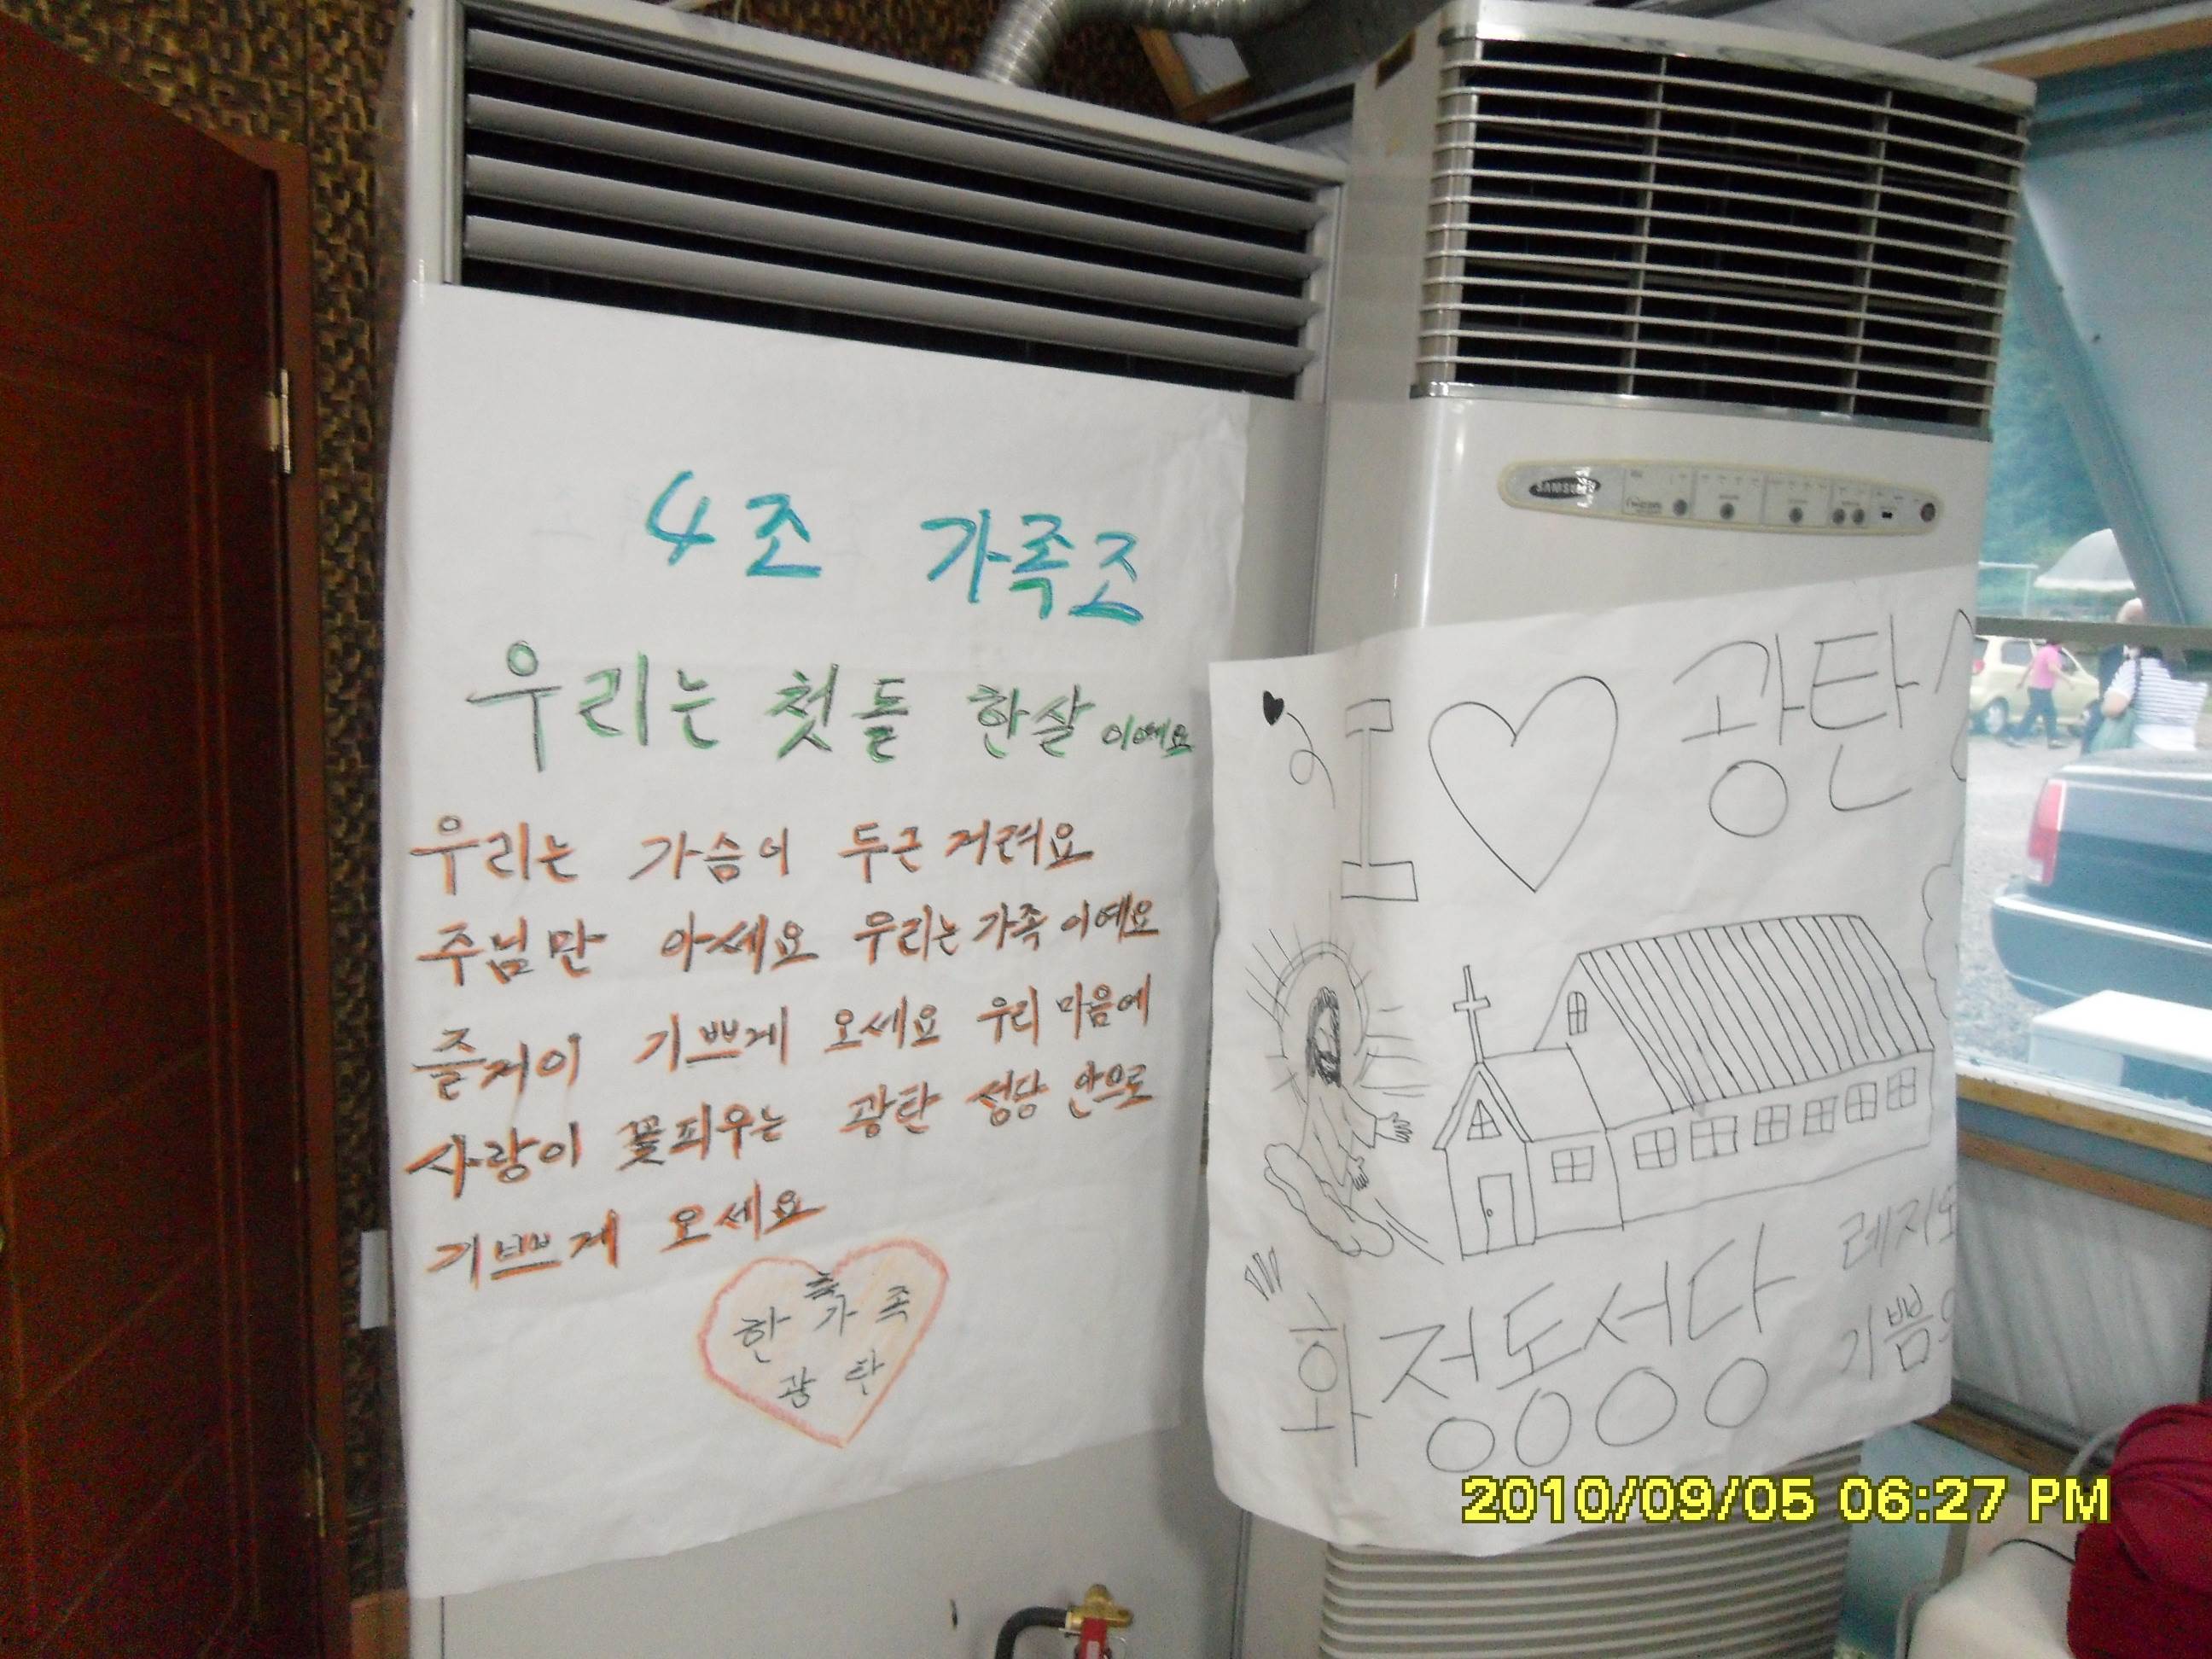 4조 가족조
우리는 첫돌 한살이예요
우리는 가슴이 두근거려요
주님만 아세요 우리는 가족이예요
즐거이 기쁘게 오세요 우리 마음에
사랑이 꽃피우는 광탄 성당 안으로
기쁘게 오세요
한 가족
광탄
SAMSUNG
I 광탄
화정동성당
레지오
기쁨의
2010/09/05 06:27 PM